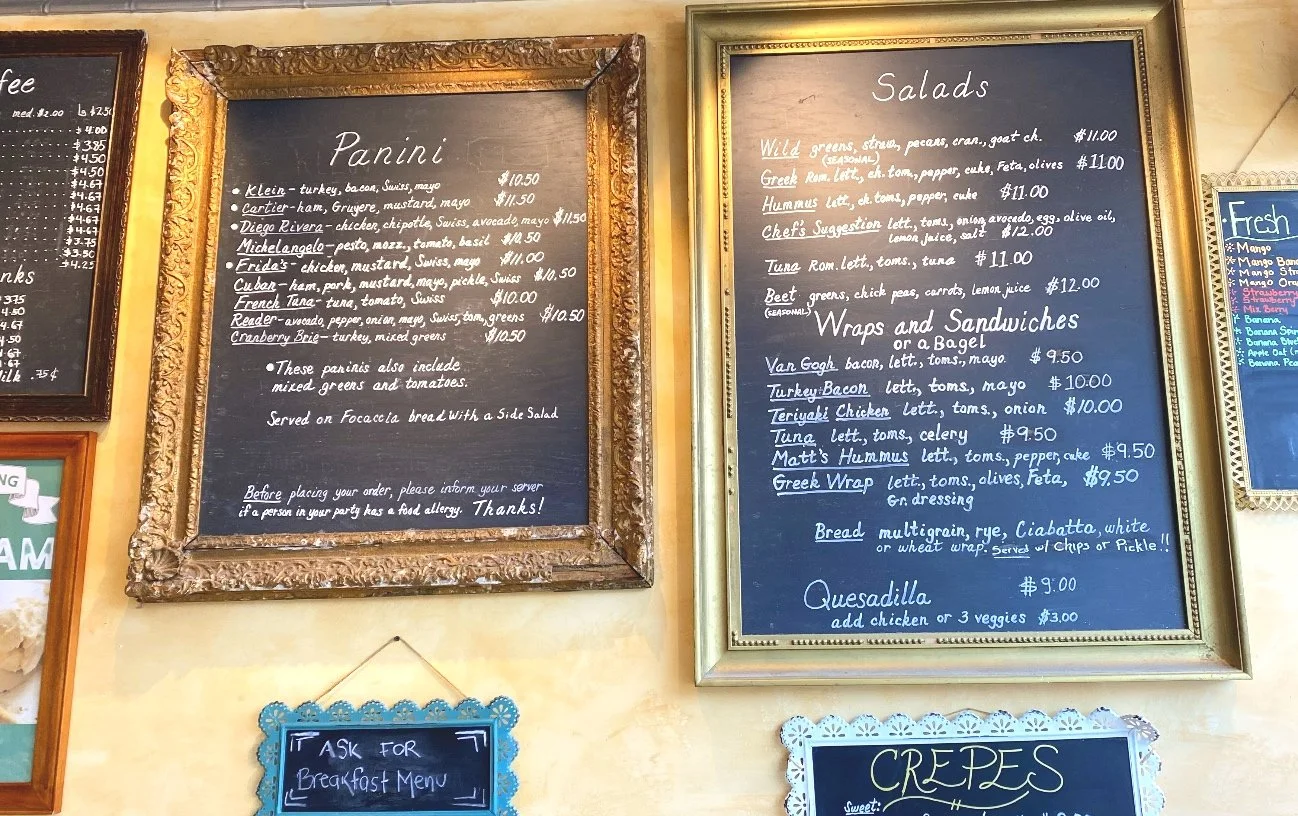 fee
med. $2.00 Lg $2.50
$4.00
$3.85
$4.50
$4.50
$4.67
$4.67
$4.67
$4.67
$4.67
$3.75
$3.50
$4.25
nks
3.75
4.50
4.67
4.50
4.67
4.67
Milk .75¢
NG
AM
Panini
• Klein - turkey, bacon, Swiss, mayo $10.50
• Cartier - ham, Gruyere, mustard, mayo $11.50
• Diego Rivera - chicken, chipotle, Swiss, avocado, mayo $11.50
Michelangelo - pesto, mozz., tomato, basil $10.50
• Frida's - chicken, mustard, Swiss, mayo $11.00
Cuban - ham, pork, mustard, mayo, pickle, Swiss $10.50
French Tana - tuna, tomato, Swiss $10.00
Reader - avocado, pepper, onion, mayo, Swiss, tom, greens $10.50
Cranberry Brie - turkey, mixed greens $10.50
• These paninis also include
mixed greens and tomatoes.
Served on Focaccia bread With a Side Salad
Before placing your order, please inform your server
if a person in your party has a food allergy. Thanks!
ASK FOR
Breakfast Menu
Salads
Wild greens, straw, pecans, cran., goat ch. $11.00
(SEASONAL)
Greek Rom. lett., ch. tom., pepper, cuke, Feta, olives $11.00
Hummus lett., ch. toms., pepper, cuke $11.00
Chef's Suggestion lett., toms., onion, avocado, egg, olive oil,
lemon, juice, salt $12.00
Tuna Rom. lett., toms., tuna $11.00
Beet greens, chick peas, carrots, lemon juice $12.00
(SEASONAL)
Wraps and Sandwiches
or a Bagel
Van Gogh bacon, lett., toms., mayo. $9.50
Turkey Bacon lett., toms., mayo $10.00
Teriyaki Chicken lett., toms., onion $10.00
Tuna lett., toms., celery $9.50
Matt's Hummus lett., toms., pepper, cuke $9.50
Greek Wrap lett., toms., olives, Feta, $9.50
Gr. dressing
Bread multigrain, rye, Ciabatta, white
or wheat wrap. Served w/ Chips or Pickle!!
Quesadilla $9.00
add chicken or 3 veggies $3.00
CREPES
Sweet:
Fresh
* Mango
* Mango Bana
* Mango Str
* Mango Ora
* Strawberry
* Strawberry
* Mix Berry
* Banana
* Banana Spin
* Banana Blue
* Apple Oat
* Banana Pea